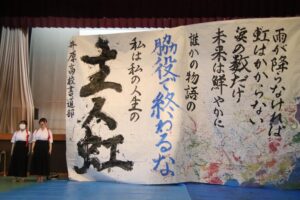 雨が降らなければ
虹はかからない
涙の数だけ
未来は鮮やかに
誰かの物語の
脇役で終わるな
私は私の人生の
主人虹
井原高校書道部